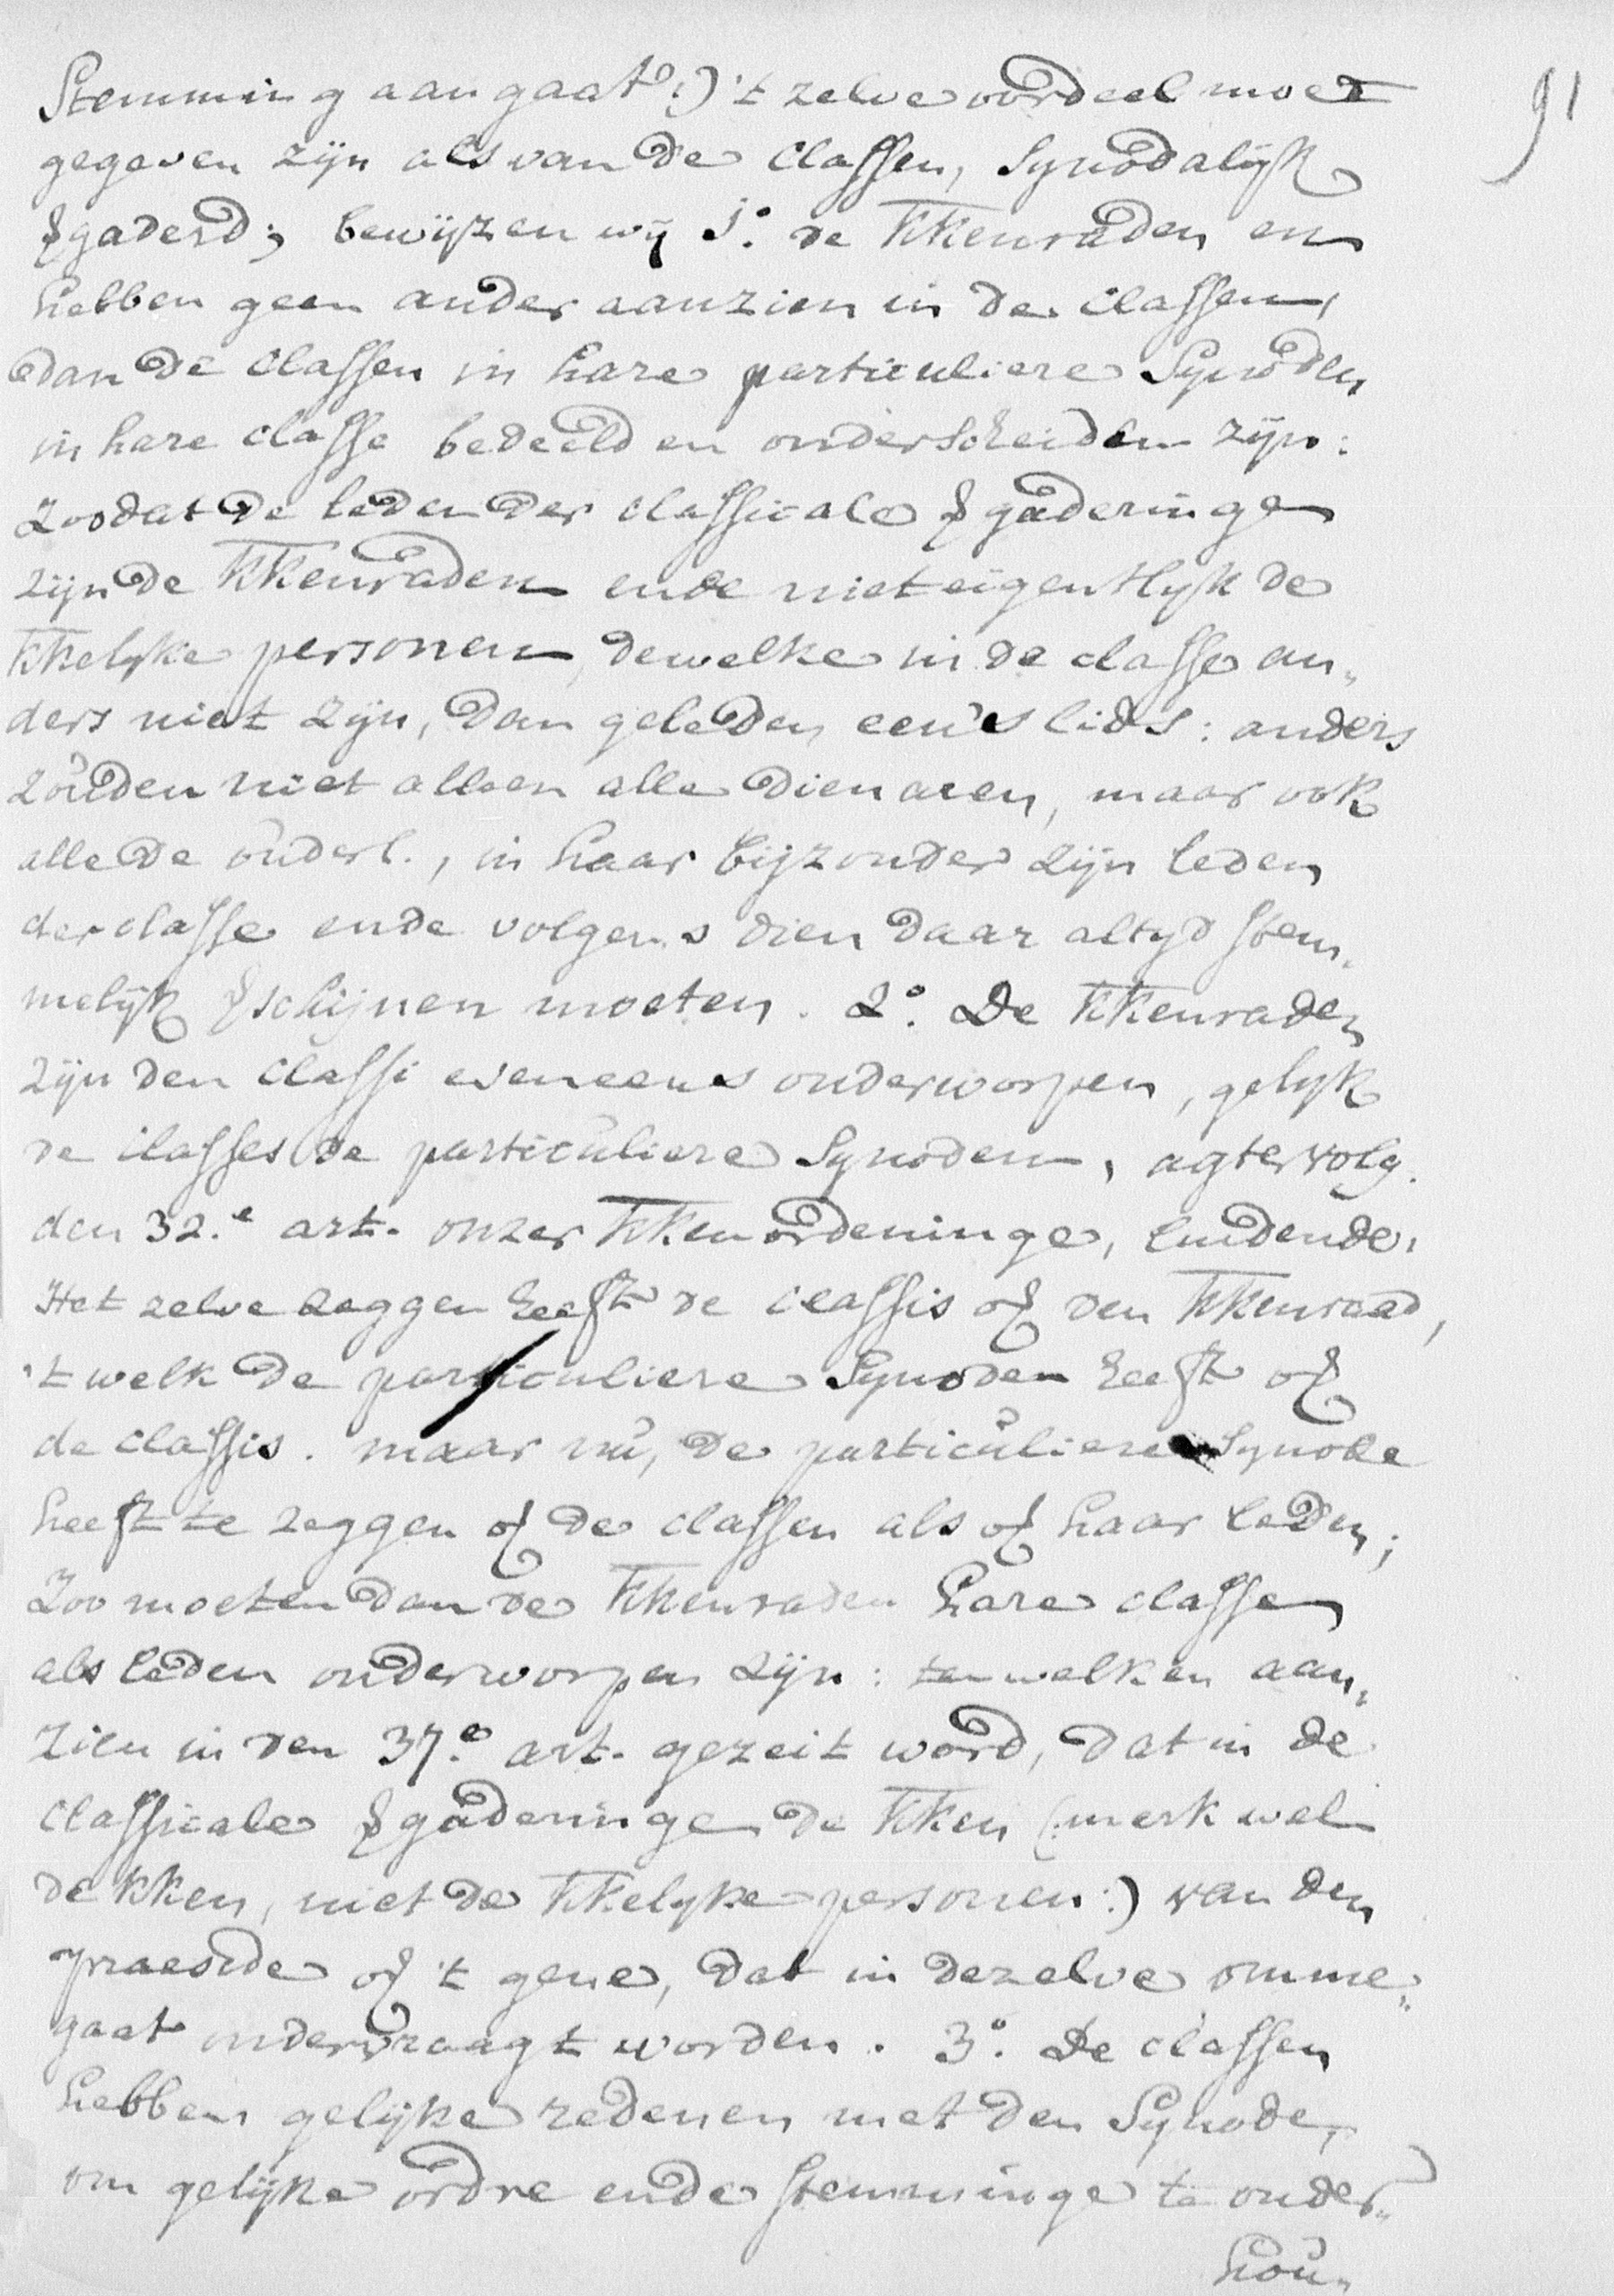 91
Stemming aangaat:) 't zelve oordeel moet
gegeven zijn als van de Classen, Synodalijk
vgaderd; bewijzen wij 1.° de kkenraden en
hebben geen ander aanzien in de Classen,
dan de Classen in hare particuliere Synoden
in hare classe bedeeld en onderscheiden zijn:
zoodat de leden der classicale vgaderingen
zijn de kkenraden ende niet eigentlijk de
kkelyke personen, dewelke in de classe an„
ders niet zijn, dan geleden een's lids: anders
zouden niet alleen alle dienaren, maar ook
alle de ouderl., in haar bijzonder zijn leden
der classe ende volgens dien daar altyd stem„
melijk vschijnen moeten. 2.° De kkenraden
zijn den Classi eveneens onderworpen, gelyk
de classes de particuliere Synoden, agtervolg.
den 32.e art. onzer kkenordeninge, luidende,
Het zelve zeggen heeft de classis op den kkenraad,
't welk de particuliere Synoden heeft op
de classis. maar nu, de particuliere Synode
heeft te zeggen op de classen als op haar leden;
Zoo moeten dan de kkenraden hare classen
als leden onderworpen zijn: ten welken aan„
zien in den 37.e art. gezeit word, dat in de
Classicale vgaderingen de kken (:merk wel
de kken, niet de kkelyke personen:) van den
praeside op 't gene, dat in dezelve omme„
gaat ondervraagt worden. 3.° De classen
hebben gelijke redenen met den Synode,
om gelijke ordre ende stemminge te onder„
hou„